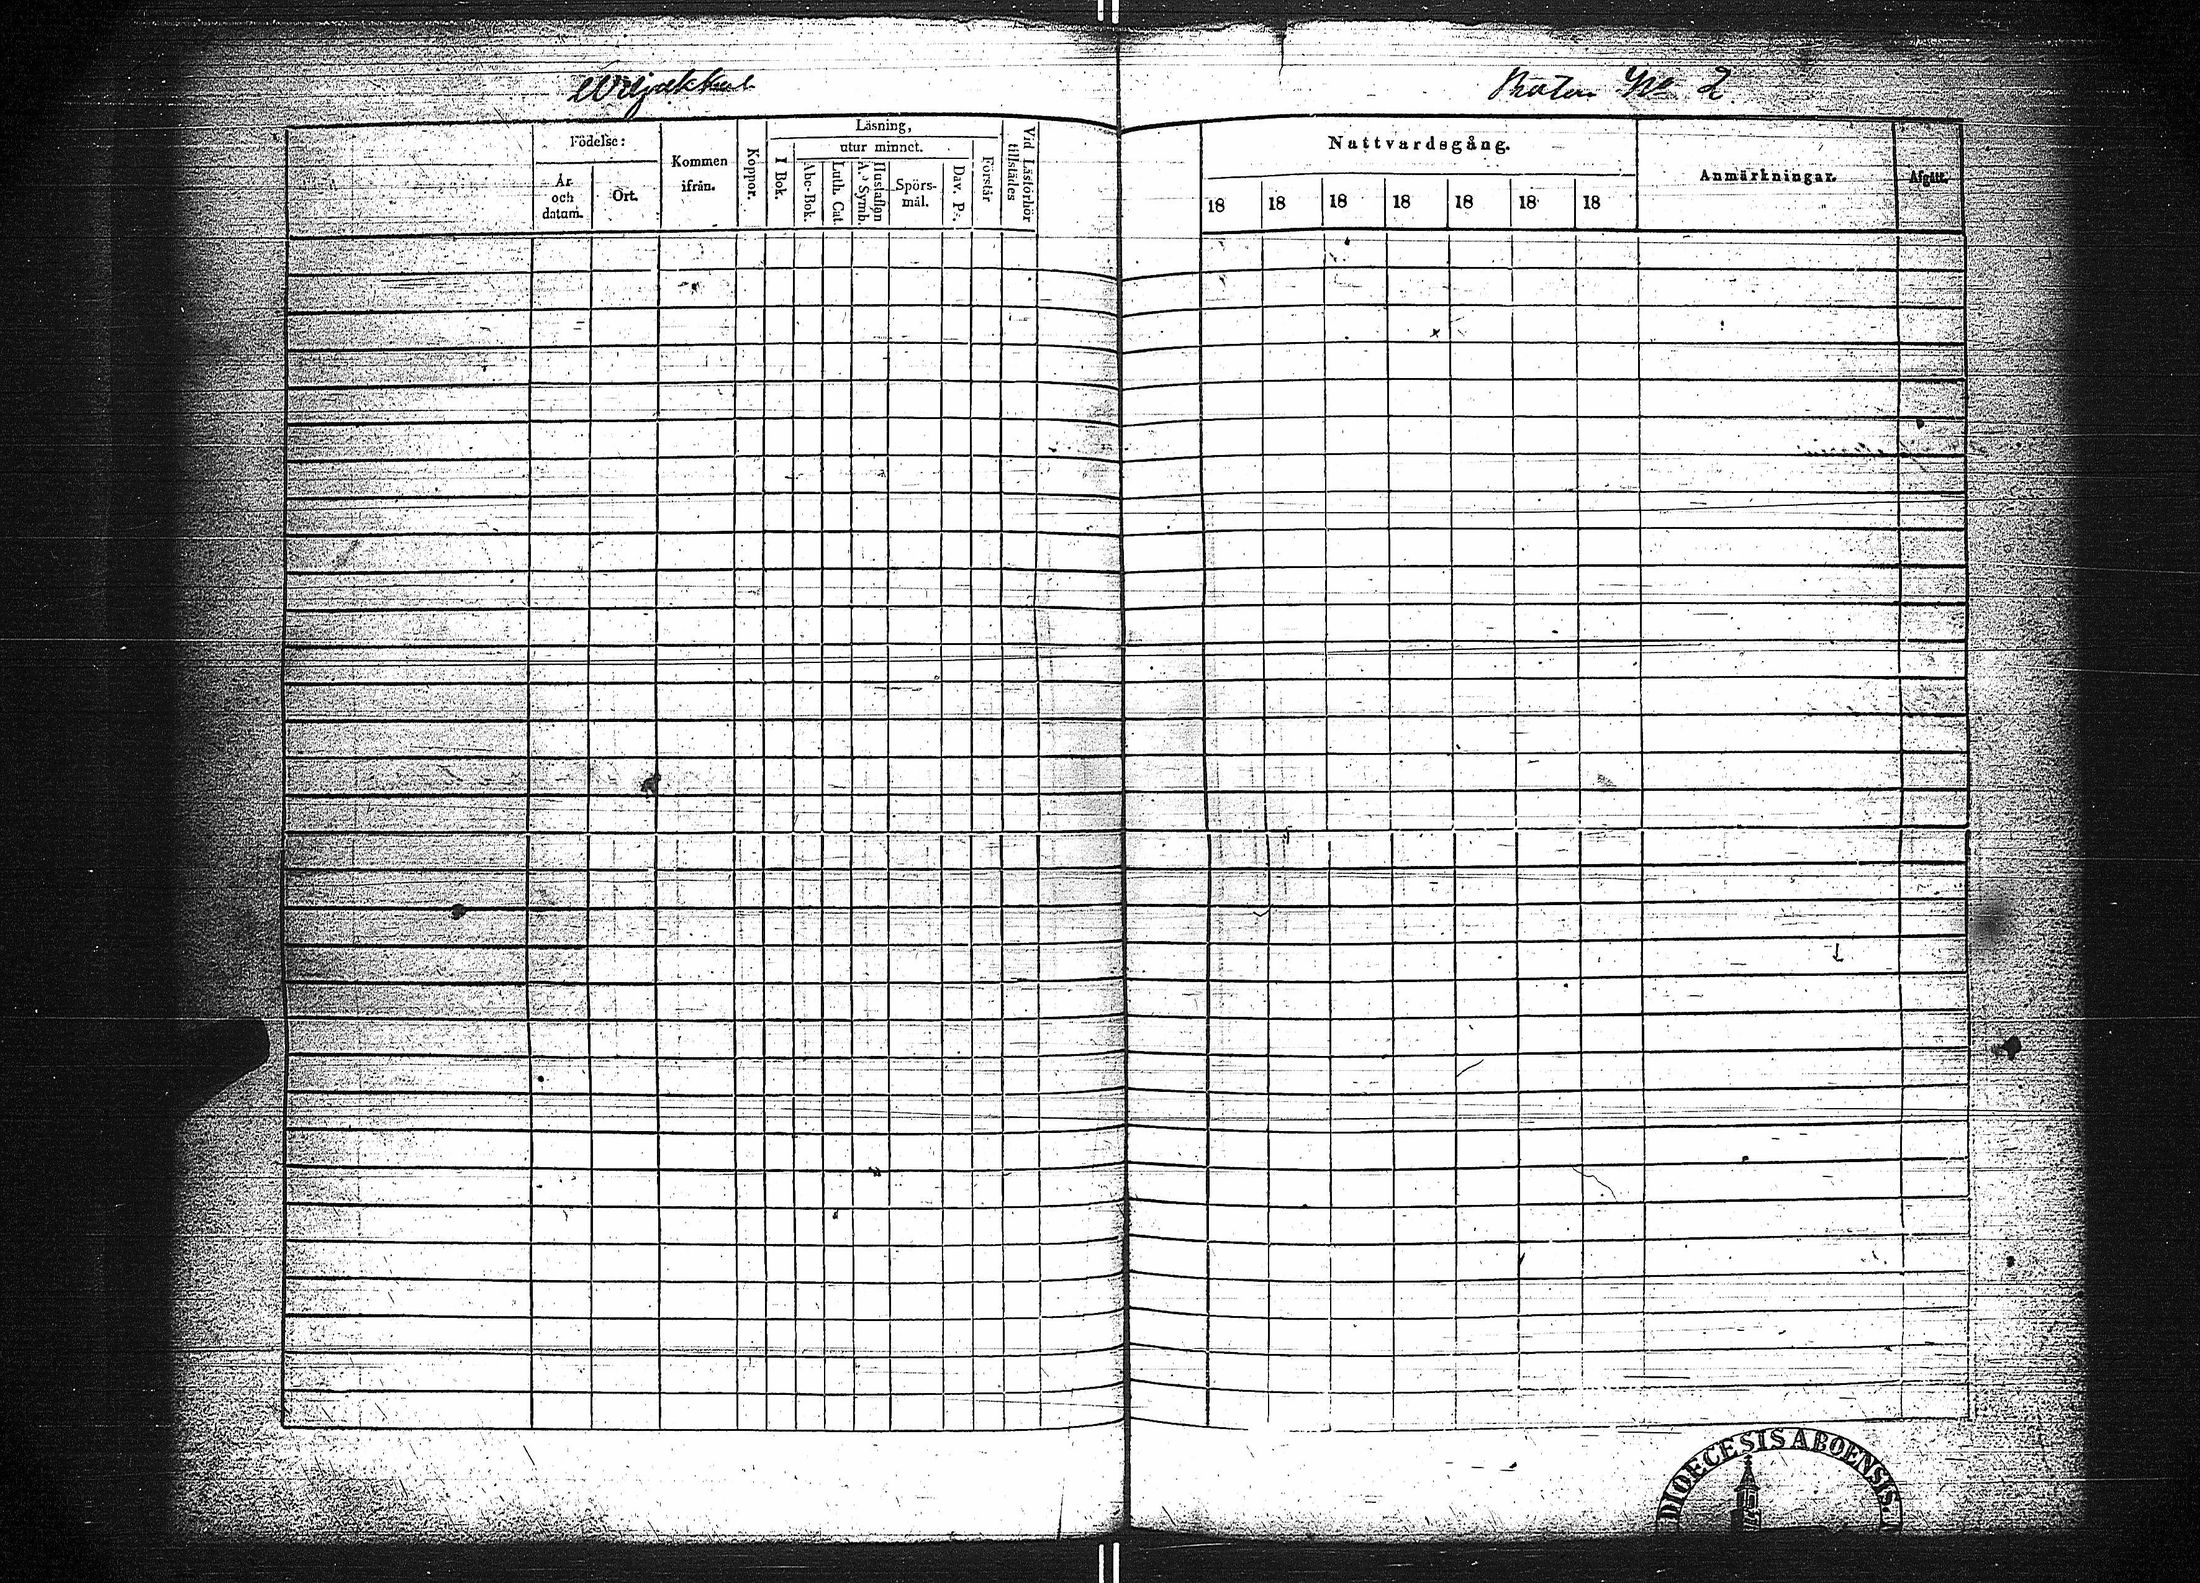 No 2
Födelse:
År och datum.
Ort.
Kommen ifrån.
Koppor.
Läsning,
utur minnet.
I Bok.
Abc-Bok.
Luth. Cat.
Hustaflan A. Symb.
Spörs-
mål.
Dav. Ps.
Förstår
Vid Läsförhör
tillstädes
Nattvardsgång.
18 18 18 18 18 18 18
Anmärkningar.
Afgått.
DIOECESIS ABOENSIS.